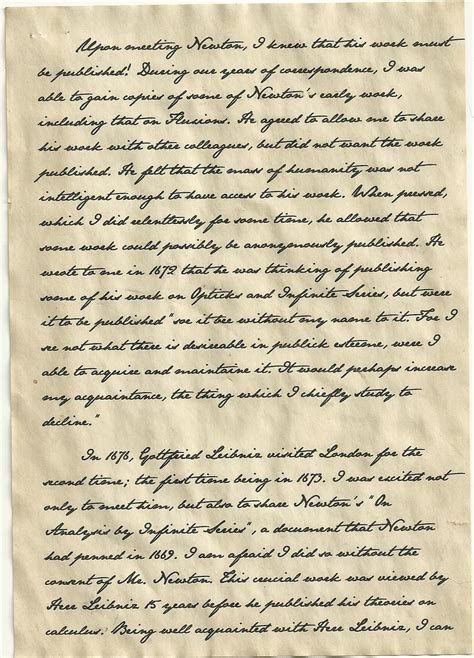 Upon meeting Newton, I knew that his work must
be published! During our years of correspondence, I was
able to gain copies of some of Newton's early work,
including that on Fluxions. He agreed to allow me to share
his work with other colleagues, but did not want the work
published. He felt that the mass of humanity was not
intelligent enough to have access to his work. When pressed,
which I did relentlessly for some time, he allowed that
some work could possibly be anonymously published. He
wrote to me in 1672 that he was thinking of publishing
some of his work on Opticks and Infinite Series, but were
it to be published "soe it bee without my name to it. For I
see not what there is desireable in publick esteeme, were I
able to acquire and maintaine it. It would perhaps increase
my acquaintance, the thing which I chiefly study to
decline."
In 1676, Gottfried Leibniz visited London for the
second time; the first time being in 1673. I was excited not
only to meet him, but also to share Newton's "On
Analysis by Infinite Series", a document that Newton
had penned in 1669. I am afraid I did so without the
consent of Mr. Newton. This crucial work was viewed by
Herr Leibniz 15 years before he published his theories on
calculus. Being well acquainted with Herr Leibniz, I can